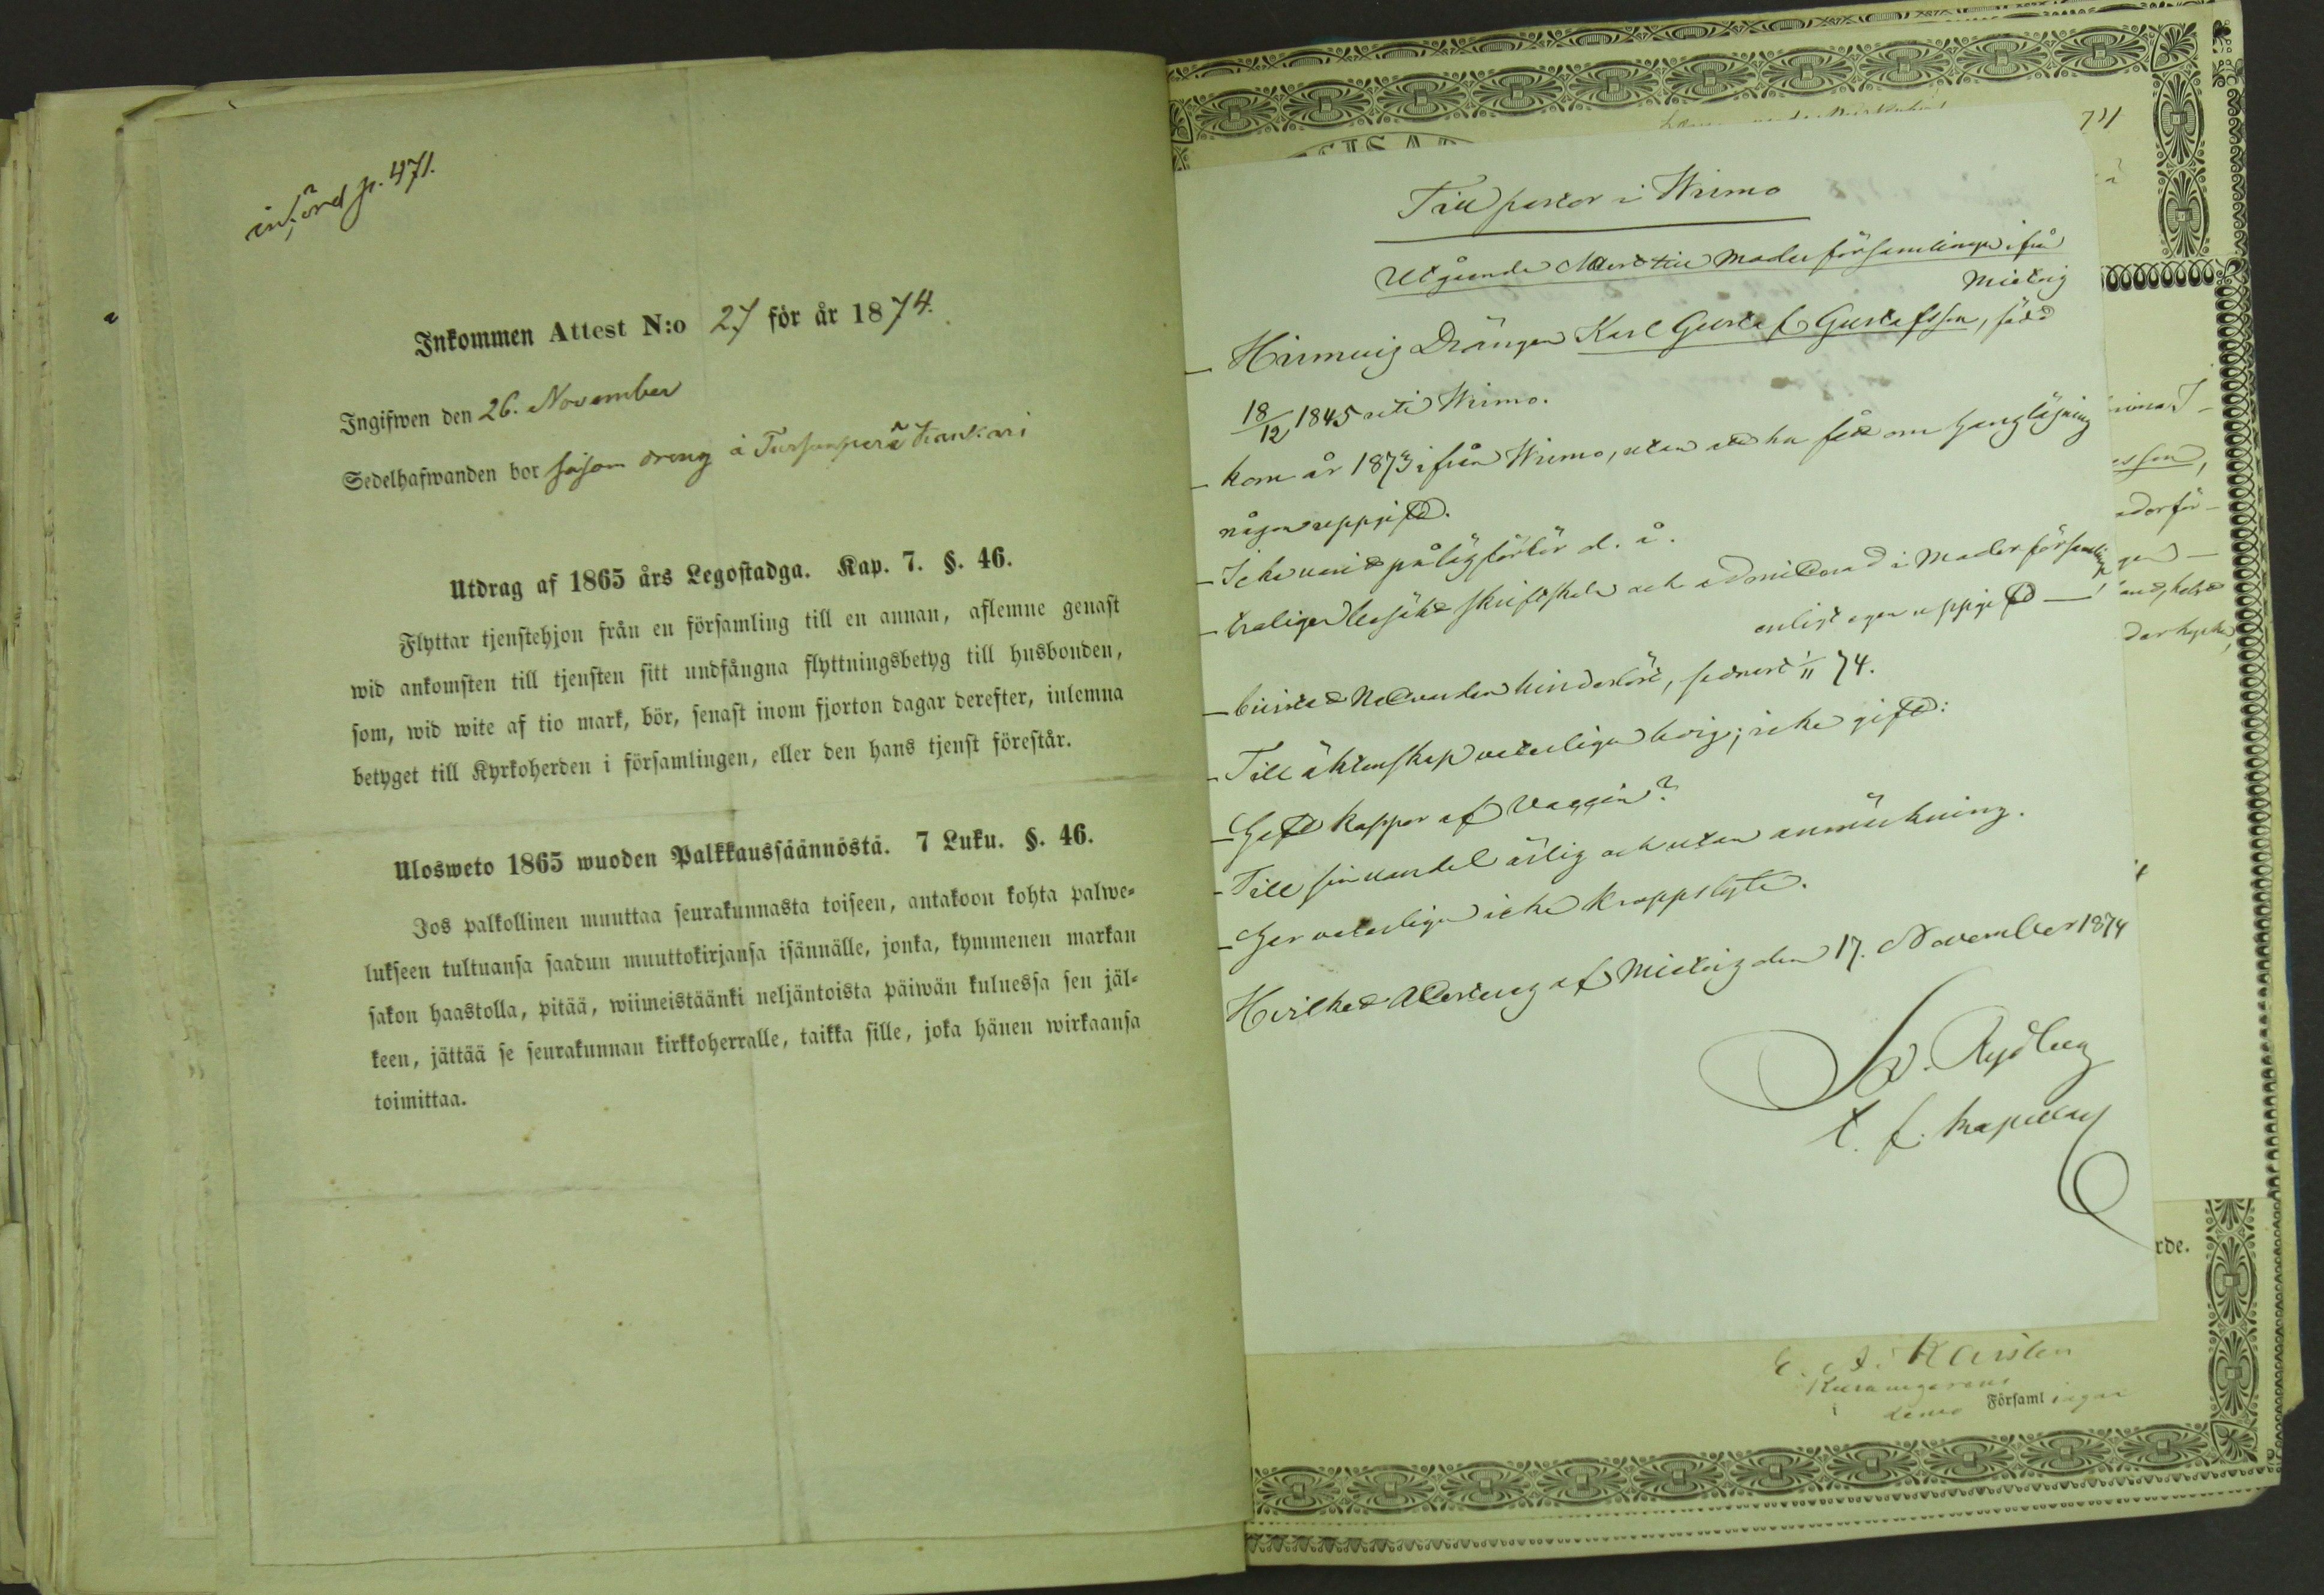 införd p. 471.
Inkommen Attest N:o 27 för år 1874.
Ingifwen den 26. November
Sedelhafwanden bor såsom dreng å Tursunperä Kankari
Utdrag af 1865 års Legostadga. Kap. 7. §. 46.
Flyttar tjenstehjon från en församling till en annan, aflemne genast
wid ankomsten till tjensten sitt undfångna flyttningsbetyg till husbonden,
som, wid wite af tio mark, bör, senast inom fjorton dagar derefter, inlemna
betyget till Kyrkoherden i församlingen, eller den hans tjenst förestår.
Ulosweto 1865 wuoden Palkkaussäännöstä. 7 Luku. §. 46.
Jos palkollinen muuttaa seurakunnasta toiseen, antakoon kohta palwe-
lukseen tultuansa saadun muuttokirjansa isännälle, jonka, kymmenen markan
sakon haastolla, pitää, wiimeistäänki neljäntoista päiwän kuluessa sen jäl-
keen, jättää se seurakunnan kirkkoherralle, taikka sille, joka hänen wirkaansa
toimittaa.
711
Till pastor i Wirmo
Utgående Attest till moderförsamlingen ifrån
Mietoig
– Hirmuig Drängen Karl Gustaf Gustafsson, född
18/12 1845 uti Wirmo.
– kom år 1873 ifrån Wirmo, utan att ha fått om
någon uppgift.
– Icke varit på läsförhör d. å.
– troligen besökt skriftskola och admitterad i Moderförsamlingen
enligt egen uppgift –
– bivistat Nattvarden hinderlöst, sednast 1/11 74.
– Till äktenskap veterligen ledig; icke gift:
– Haft koppor af Vaccin?
– Till sin vandel ärlig och utan anmärkning.
– Har veterligen icke kroppslyte.
Hvilket Attesteras af Mietoig den 17. November 1874
Rydberg
t. f. kapellan
rde.
E. A. Karsten
i Lemo Församlingar